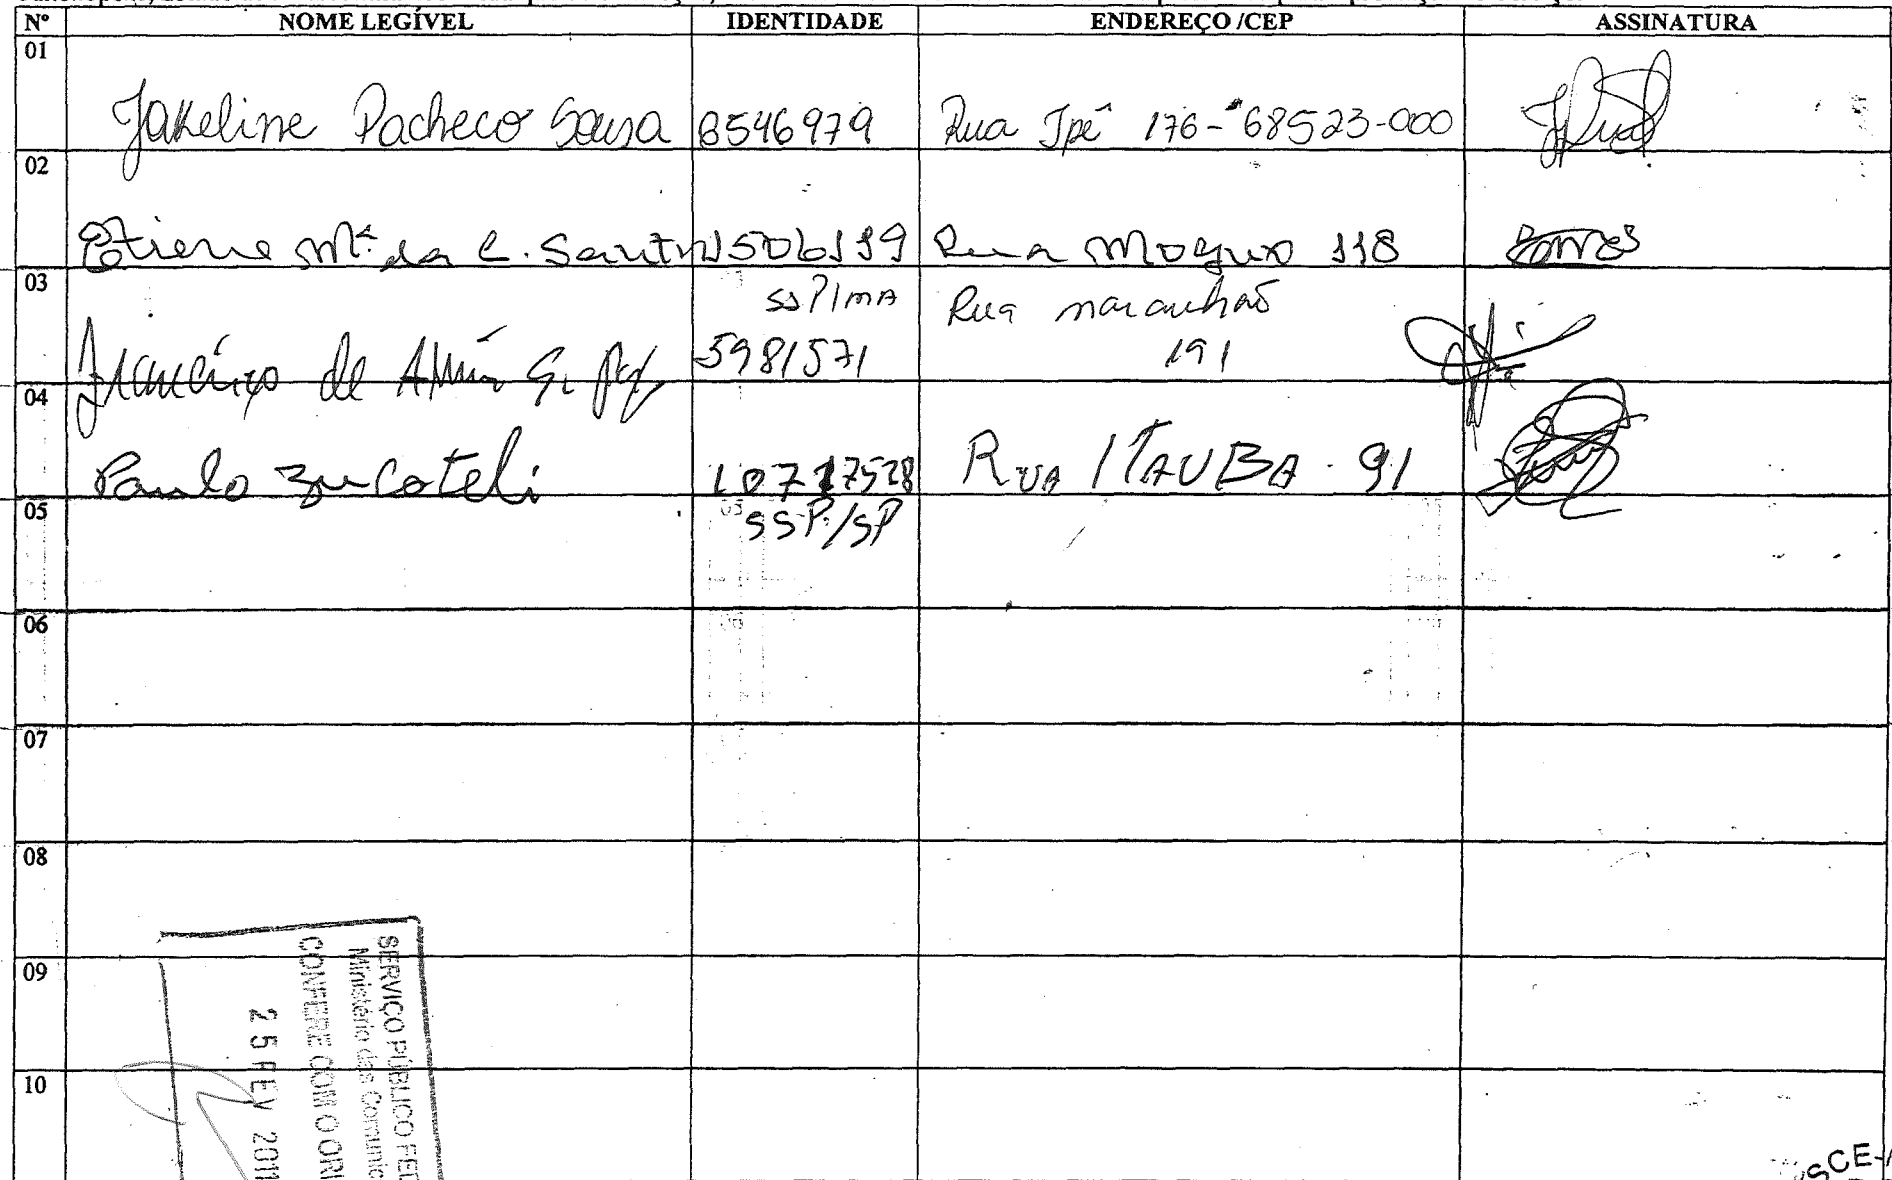 Nº NOME LEGÍVEL IDENTIDADE ENDEREÇO /CEP ASSINATURA
01 Jakeline Pacheco Sousa 8546979 Rua Ipê 176 - 68523-000
02 Etiene Mª da C. Santos 1506199 Rua Mogno 118
03 Francisco de SSP/MA 5981571 Rua maranhão 191
04 Paulo Zucateli 10717528 SSP/SP Rua ITAUBA 91
05
06
07
08
09
10
SERVIÇO PÚBLICO FED
Ministério das Comunic
CONFERE COM O ORI
25 FEV 2011
SCE-